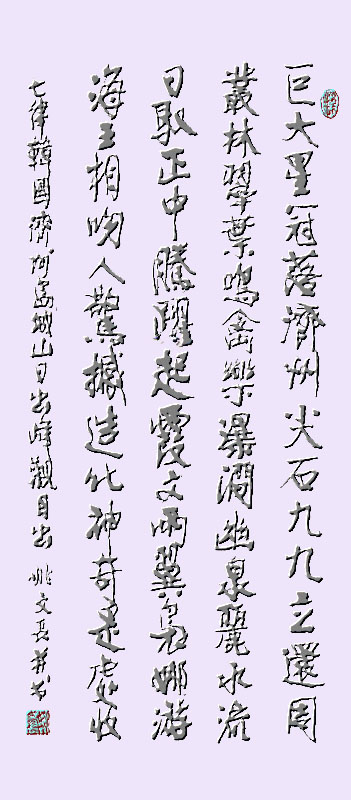 巨大皇冠落濟州尖石九九立還周
叢林翠葉鳴禽樂瀑澗幽泉麗水流
日馭正中騰躍起霞文兩翼裊娜游
海玉相吻人驚撼造化神奇是處收
七律韓國濟州島城山日出峰觀日出 姚文長并書